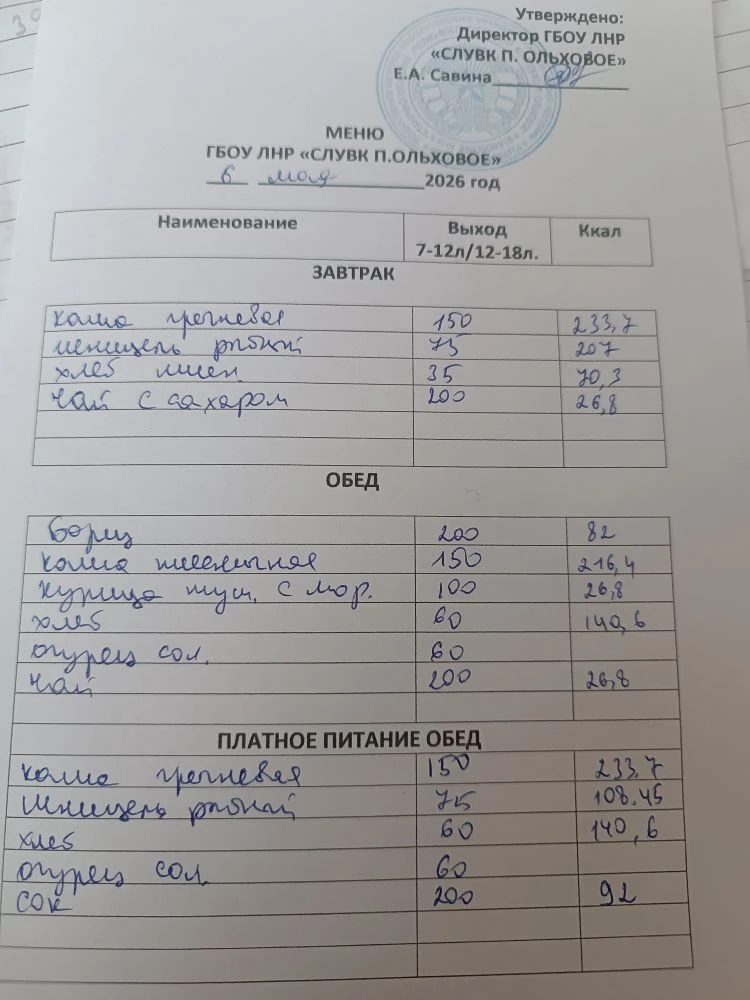 Утверждено:
Директор ГБОУ ЛНР
«СЛУВК П. ОЛЬХОВОЕ»
Е.А. Савина
МЕНЮ
ГБОУ ЛНР «СЛУВК П.ОЛЬХОВОЕ»
6 мая 2026 год
Наименование Выход Ккал
7-12л/12-18л.
ЗАВТРАК
каша гречневая 150 233,7
шницель рыбный 75 207
хлеб пшен. 35 70,3
чай с сахаром 200 26,8
ОБЕД
Борщ 200 82
каша пшеничная 150 216,4
курица туш. с мор. 100 26,8
хлеб 60 140,6
огурец сол. 60
чай 200 26,8
ПЛАТНОЕ ПИТАНИЕ ОБЕД
каша гречневая 150 233.7
Шницель рыбный 75 108.45
хлеб 60 140,6
огурец сол. 60
сок 200 92